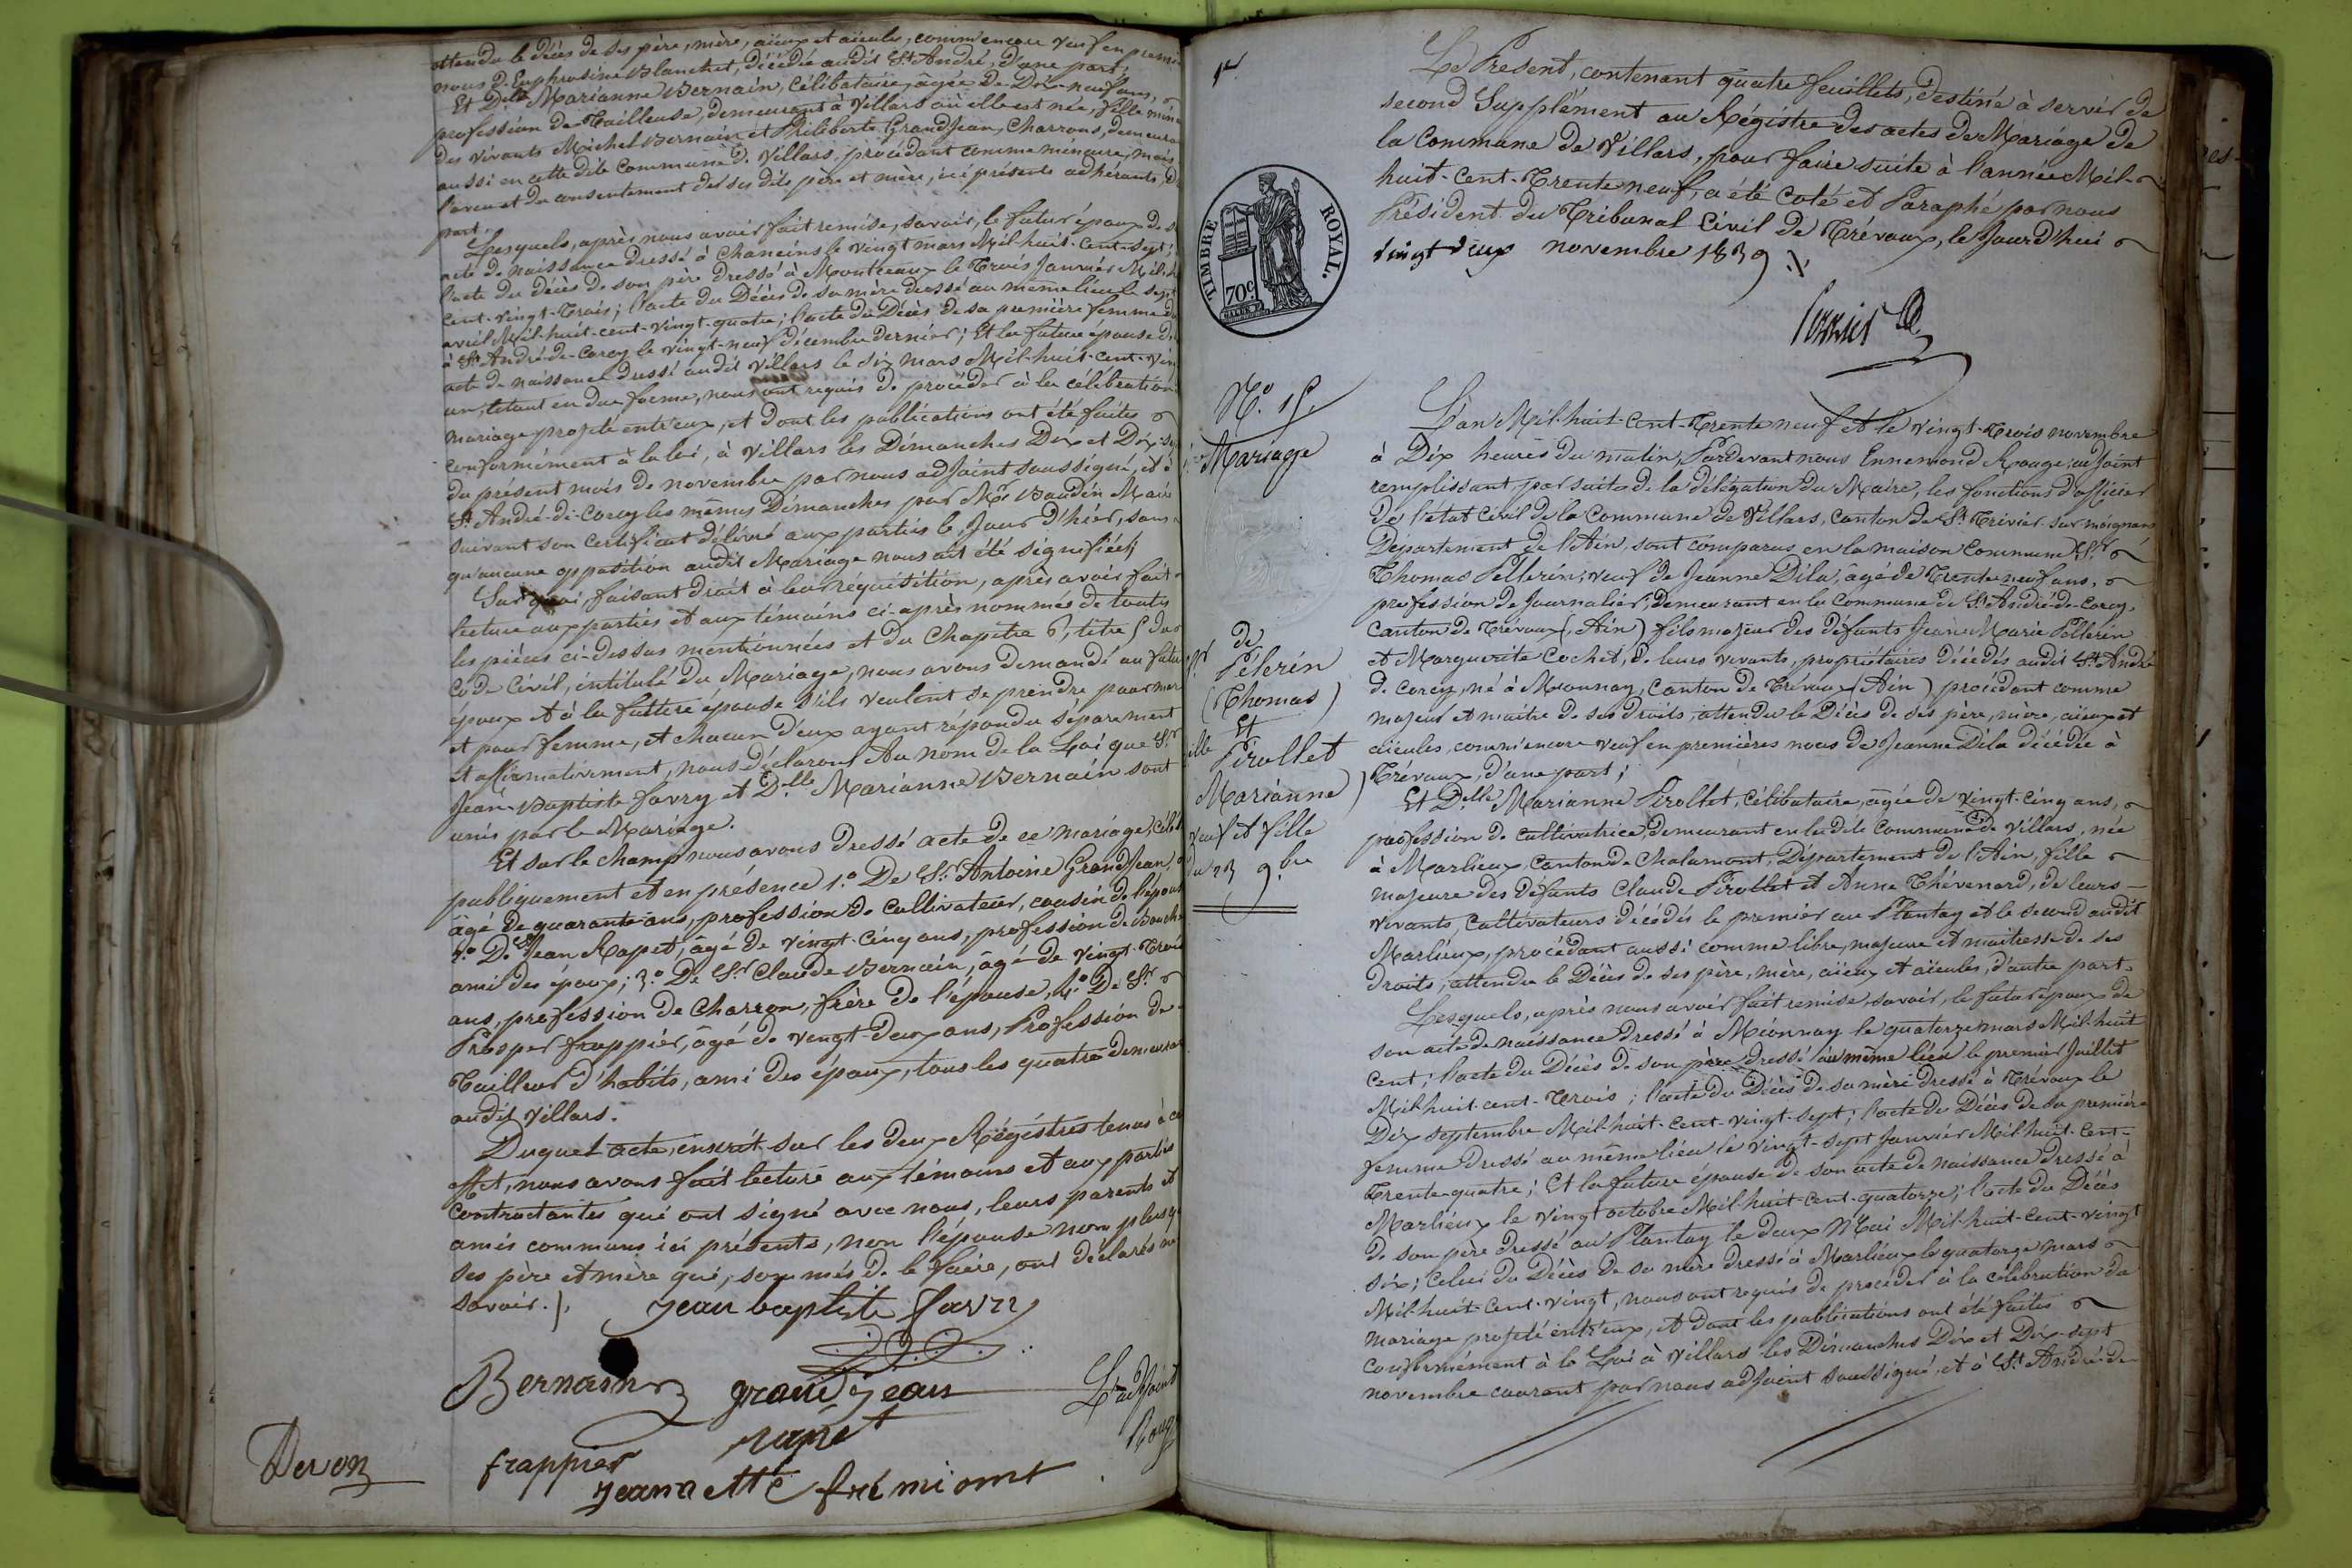 attendu le décès de ses père, mère, aïeux et aïeules, comm'encore veuf en premi
nous d'Euphrosine Blanchet, décédée audit St André, d'une part;
Et Dlle Marianne Bernain, Célibataire, âgée de Dix-neuf ans,
profession de Tailleuse, demeurant à Villars où elle est née, fille min
des vivants Michel Bernain et Philiberte GrandJean, Charrons, demeura
aussi en cette dite Commune de Villars, procédant comme mineure, mais
l'aveu et du consentement de ses dits père et mère, ici présents adhérants, d
part.
Lesquels, après nous avoir fait remise, savoir, le futur époux de s
acte de naissance dressé à Chaneins le vingt mars Mil-huit-cent-sept;
l'acte du décès de son père dressé à Montceaux le Trois Janvier Mil-h
cent-vingt-Trois; l'acte du Décès de sa mère dressé au même lieu le sept
avril Mil-huit-cent-vingt-quatre; l'acte de Décès de sa première femme d
à St André-de-Corcy le vingt-neuf décembre dernier; Et la future épouse d
acte de naissance dressé audit Villars le dix mars Mil-huit-cent-vin
un, étant en due forme, nous ont requis de procéder à la célébration
mariage projeté entr'eux, et dont les publications ont été faites
conformément à la loi, à Villars les Dimanches Dix et Dix-se
du présent mois de novembre par nous adjoint soussigné, et à
St André-de-Corcy les mêmes Dimanches par Mr Baudin Maire
suivant son certificat délivré aux parties le Jour d'hier, sans
qu'aucune opposition audit Mariage nous ait été signifiée;
Sur quoi, faisant droit à leur réquisition, après avoir fait
lecture aux parties et aux témoins ci-après nommés de toutes
les pièces ci-dessus mentionnées et du Chapitre 6, titre 5 du
Code Civil, intitulé du Mariage, nous avons demandé au futur
époux et à la future épouse s'ils veulent se prendre pour mar
et pour femme, et chacun d'eux ayant répondu séparément
et affirmativement, nous déclarons Au nom de la Loi que Sr
Jean-Baptiste Favry et Dlle Marianne Bernain sont
unis par le Mariage.
Et sur le champ nous avons dressé acte de ce mariage, célé
publiquement et en présence 1.º De Sr Antoine GrandJean,
âgé de quarante ans, profession de Cultivateur, cousin de l'épous
2.º De Jean Rapet, âgé de vingt-cinq ans, profession de Bouche
ami des époux; 3.º De Sr Claude Bernain, âgé de vingt-Trois
ans, profession de Charron, frère de l'épouse, 4.º De Sr
Prosper frappier, âgé de vingt-deux ans, Profession de
Tailleur d'habits, ami des époux, tous les quatre demeura
audit Villars.
Duquel acte, inscrit sur les deux Régistres tenus à ce
effet, nous avons fait lecture aux témoins et aux parties
contractantes qui ont signé avec nous, leurs parents et
amis communs ici présents, non l'épouse non plus q
ses père et mère qui, sommés de le faire, ont déclarés ne
savoir./.
Jean baptiste favry
Bernain
grand jean
L'adjoint
Roug
rapet
Devon
frappier
jeannette frémiont
1er
Le Présent, contenant quatre feuillets, destiné à servir de
second Supplément au Régistre des actes de Mariage de
la Commune de Villars, pour faire suite à l'année Mil-
huit-cent-Trente neuf, a été coté et Paraphé par nous
Président du Tribunal Civil de Trévoux, le Jourd'hui
vingt deux novembre 1839
TIMBRE ROYAL.
70c.
N.º 15.
Mariage
de
Sr Pélerin
(Thomas)
Et
Dlle Pirollet
Marianne)
veuf et fille
du 23 9.bre
L'an Mil-huit-cent-Trente neuf et le vingt-Trois novembre
à Dix heures du matin, Pardevant nous Ennemond Rouge, adjoint
remplissant, par suite de la délégation du Maire, les fonctions d'officier
de l'état civil de la commune de Villars, canton de St Trivier sur moignans
Département de l'Ain, sont comparus en la maison Commune Sr
Thomas Pellerin, veuf de Jeanne Dila, âgé de Trente neuf ans,
profession de Journalier, demeurant en la Commune de St André-de-Corcy,
Canton de Trévoux (Ain) fils majeur des défunts Jean Marie Pellerin
et Marguerite Cochet, de leurs vivants, propriétaires décédés audit St André
de Corcy, né à Mionnay, Canton de Trévoux (Ain) procédant comme
majeur et maître de ses droits, attendu le Décès de ses père, mère, aïeux et
aïeules, comm'encore veuf en premières noces de Jeanne Dila décédée à
Trévoux, d'une part;
Et Dlle Marianne Pirollet, Célibataire, âgée de vingt-cinq ans,
profession de cultivatrice, demeurant en la dite Commune de Villars, née
à Marlieux, canton de Chalamont, Département de l'Ain, fille
majeure des défunts Claude Pirollet et Anne Thévenard, de leurs
vivants, Cultivateurs décédés le premier au Plantay et le second audit
Marlieux, procédant aussi comme libre, majeure et maitresse de ses
droits, attendu le Décès de ses père, mère, aïeux et aïeules, d'autre part.
Lesquels, après nous avoir fait remise, savoir, le futur époux de
son acte de naissance dressé à Mionnay le quatorze mars Mil-huit
cent; l'acte du Décès de son père dressé au même lieu le premier Juillet
Mil-huit-cent-Trois; l'acte du Décès de sa mère dressé à Trévoux le
Dix septembre Mil-huit-cent-vingt-sept; l'acte du Décès de sa première
femme dressé au même lieu le vingt-sept Janvier Mil-huit-cent-
Trente-quatre; Et la future épouse de son acte de naissance dressé à
Marlieux le vingt octobre Mil-huit-cent-quatorze; l'acte du Décès
de son père dressé au Plantay le deux Mai Mil-huit-cent-vingt
six; celui du Décès de sa mère dressé à Marlieux le quatorze mars
Mil-huit-cent-vingt, nous ont requis de procéder à la célébration du
mariage projeté entr'eux, et dont les publications ont été faites
conformément à la Loi à Villars les Dimanches Dix et Dix-sept
novembre courant par nous adjoint soussigné, et à St André-de